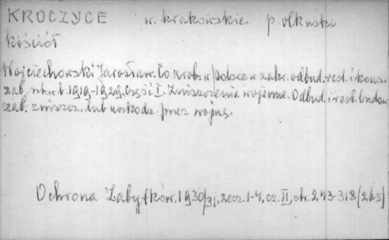 KROCZYCE w. krakowskie p. olkuski
kościół
Wojciechowski Jarosław. Co zrob. w Polsce w zakr. odbud. rest. i kons.
zab. w l. 1919-1929. Część I. Zniszczenia wojenne. Odbud. i rest. budow.
zab. zniszcz. lub uszkodz. przez wojnę.
Ochrona Zabytków. 1930/31, zesz. 1-4, cz. II, str. 243-318 (265)